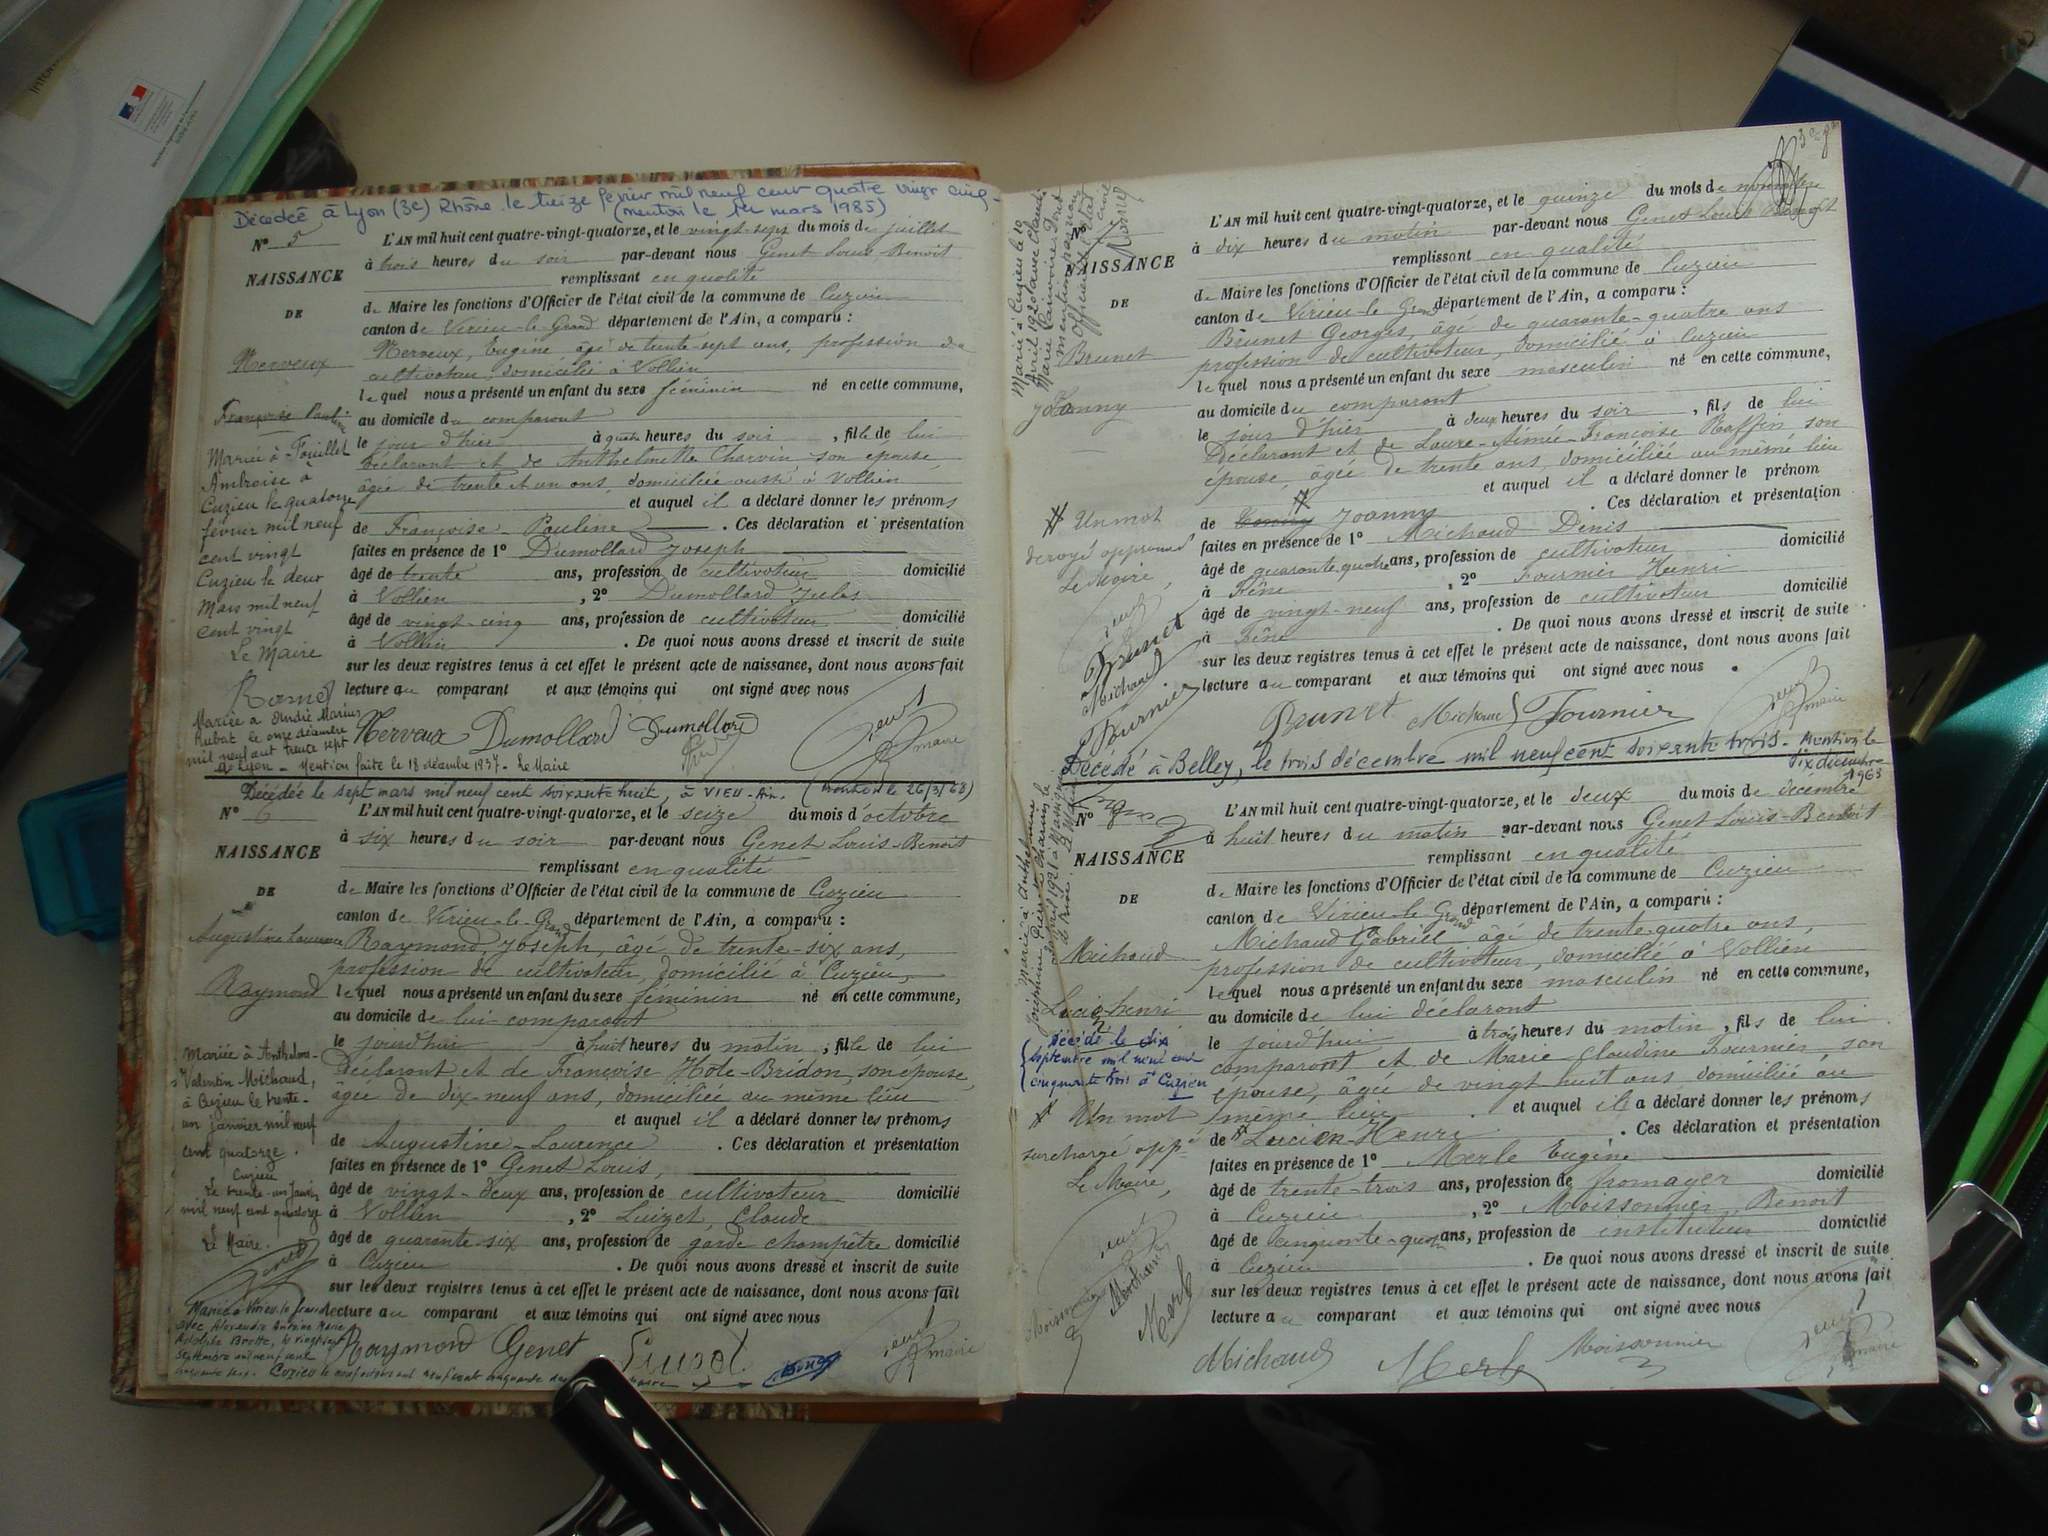 Décédée à Lyon (3e) Rhône le treize février mil neuf cent quatre vingt cinq -
(mention le 1er mars 1985)
N° 5
NAISSANCE
DE
Nerveux
Françoise Pauline
L'AN mil huit cent quatre-vingt-quatorze, et le vingt-sept du mois de juillet
à trois heures du soir par-devant nous Genet Louis-Benoit
remplissant en qualité
de Maire les fonctions d'Officier de l'état civil de la commune de Cuzieu
canton de Virieu-le-Grand département de l'Ain, a comparu :
Nerveux, Eugène âgé de trente-sept ans, profession de
cultivateur, domicilié à Vollien
lequel nous a présenté un enfant du sexe féminin né en cette commune,
au domicile du comparant
le jour d'hier à quatre heures du soir, fille de lui
déclarant et de Anthelmette Charvin son épouse,
âgée de trente et un ans, domiciliée aussi à Vollien
et auquel il a déclaré donner les prénoms
de Françoise-Pauline . Ces déclaration et présentation
faites en présence de 1° Dumollard Joseph
âgé de trente ans, profession de cultivateur domicilié
à Vollien , 2° Dumollard Jules
âgé de vingt-cinq ans, profession de cultivateur domicilié
à Vollien . De quoi nous avons dressé et inscrit de suite
sur les deux registres tenus à cet effet le présent acte de naissance, dont nous avons fait
lecture au comparant et aux témoins qui ont signé avec nous
Nerveux Dumollard Dumollard
maire
Mariée à Fouillet
Ambroise à
Cuzieu le quatorze
février mil neuf
cent vingt
Cuzieu le deux
Mars mil neuf
cent vingt
Le Maire
Mariée à André Marius
Rubat le onze décembre
mil neuf cent trente sept
à Lyon - Mention faite le 18 décembre 1937 - Le Maire
Décédée le sept mars mil neuf cent soixante huit, à VIEU-Ain. (mention le 26/3/68)
N° 6
NAISSANCE
DE
Augustine Laurence
Raymond
L'AN mil huit cent quatre-vingt-quatorze, et le seize du mois d'octobre
à six heures du soir par-devant nous Genet Louis-Benoit
remplissant en qualité
de Maire les fonctions d'Officier de l'état civil de la commune de Cuzieu
canton de Virieu-le-Grand département de l'Ain, a comparu :
Raymond Joseph, âgé de trente-six ans,
profession de cultivateur, domicilié à Cuzieu,
lequel nous a présenté un enfant du sexe féminin né en cette commune,
au domicile de lui comparant
le jourd'hui à huit heures du matin, fille de lui
déclarant et de Françoise Hote-Bridon, son épouse,
âgée de dix-neuf ans, domiciliée au même lieu
et auquel il a déclaré donner les prénoms
de Augustine-Laurence . Ces déclaration et présentation
faites en présence de 1° Genet Louis,
âgé de vingt-deux ans, profession de cultivateur domicilié
à Vollien , 2° Luizet, Claude
âgé de quarante-six ans, profession de garde champêtre domicilié
à Cuzieu . De quoi nous avons dressé et inscrit de suite
sur les deux registres tenus à cet effet le présent acte de naissance, dont nous avons fait
lecture au comparant et aux témoins qui ont signé avec nous
Raymond Genet Luizet
maire
Mariée à Anthelme-
Valentin Michaud,
à Cuzieu le trente-
un janvier mil neuf
cent quatorze.
Cuzieu
Le trente-un janvier
mil neuf cent quatorze
Le Maire.
Mariée à Virieu le Grand
avec Alexandre Antoine Marie
septembre mil neuf cent
N° 7
NAISSANCE
DE
Brunet
Joanny
Marié à Cuzieu le 10
Avril 1920 avec Claudi
L'AN mil huit cent quatre-vingt-quatorze, et le quinze du mois de novembre
à dix heures du matin par-devant nous Genet Louis Benoit
remplissant en qualité
de Maire les fonctions d'Officier de l'état civil de la commune de Cuzieu
canton de Virieu-le-Grand département de l'Ain, a comparu :
Brunet Georges, âgé de quarante-quatre ans
profession de cultivateur, domicilié à Cuzieu
lequel nous a présenté un enfant du sexe masculin né en cette commune,
au domicile du comparant
le jour d'hier à deux heures du soir, fils de lui
Déclarant et de Laure-Aimée-Françoise Raffin son
épouse, âgée de trente ans, domiciliée au même lieu
et auquel il a déclaré donner le prénom
de Joanny . Ces déclaration et présentation
faites en présence de 1° Michaud Denis
âgé de quarante-quatre ans, profession de cultivateur domicilié
à Fêne , 2° Fournier Henri
âgé de vingt-neuf ans, profession de cultivateur domicilié
à Fêne . De quoi nous avons dressé et inscrit de suite
sur les deux registres tenus à cet effet le présent acte de naissance, dont nous avons fait
lecture au comparant et aux témoins qui ont signé avec nous
Brunet Michaud Fournier
maire
Un mot
Le Maire,
Brunet
Michaud
Fournier
Décédé à Belley, le trois décembre mil neuf cent soixante trois. Mention le
dix décembre
1963
N° 8
NAISSANCE
DE
Michaud
Lucien Henri
L'AN mil huit cent quatre-vingt-quatorze, et le deux du mois de décembre
à huit heures du matin par-devant nous Genet Louis-Benoit
remplissant en qualité
de Maire les fonctions d'Officier de l'état civil de la commune de Cuzieu
canton de Virieu-le-Grand département de l'Ain, a comparu :
Michaud Gabriel âgé de trente-quatre ans,
profession de cultivateur, domicilié à Vollien
lequel nous a présenté un enfant du sexe masculin né en cette commune,
au domicile de lui déclarant
le jourd'hui à trois heures du matin, fils de lui
comparant et de Marie-Claudine Fournier, son
épouse, âgée de vingt huit ans domiciliée au
même lieu . et auquel il a déclaré donner les prénoms
de Lucien-Henri . Ces déclaration et présentation
faites en présence de 1° Merle Eugène
âgé de trente-trois ans, profession de fromager domicilié
à Cuzieu , 2° Moissonnier, Benoit
âgé de cinquante-quatre ans, profession de instituteur domicilié
à Cuzieu . De quoi nous avons dressé et inscrit de suite
sur les deux registres tenus à cet effet le présent acte de naissance, dont nous avons fait
lecture au comparant et aux témoins qui ont signé avec nous
Michaud Merle Moissonnier
maire
décédé le dix
septembre mil neuf cent
cinquante trois à Cuzieu
Un mot
surchargé appé
Le Maire,
Moissonnier
Michaud
Merle